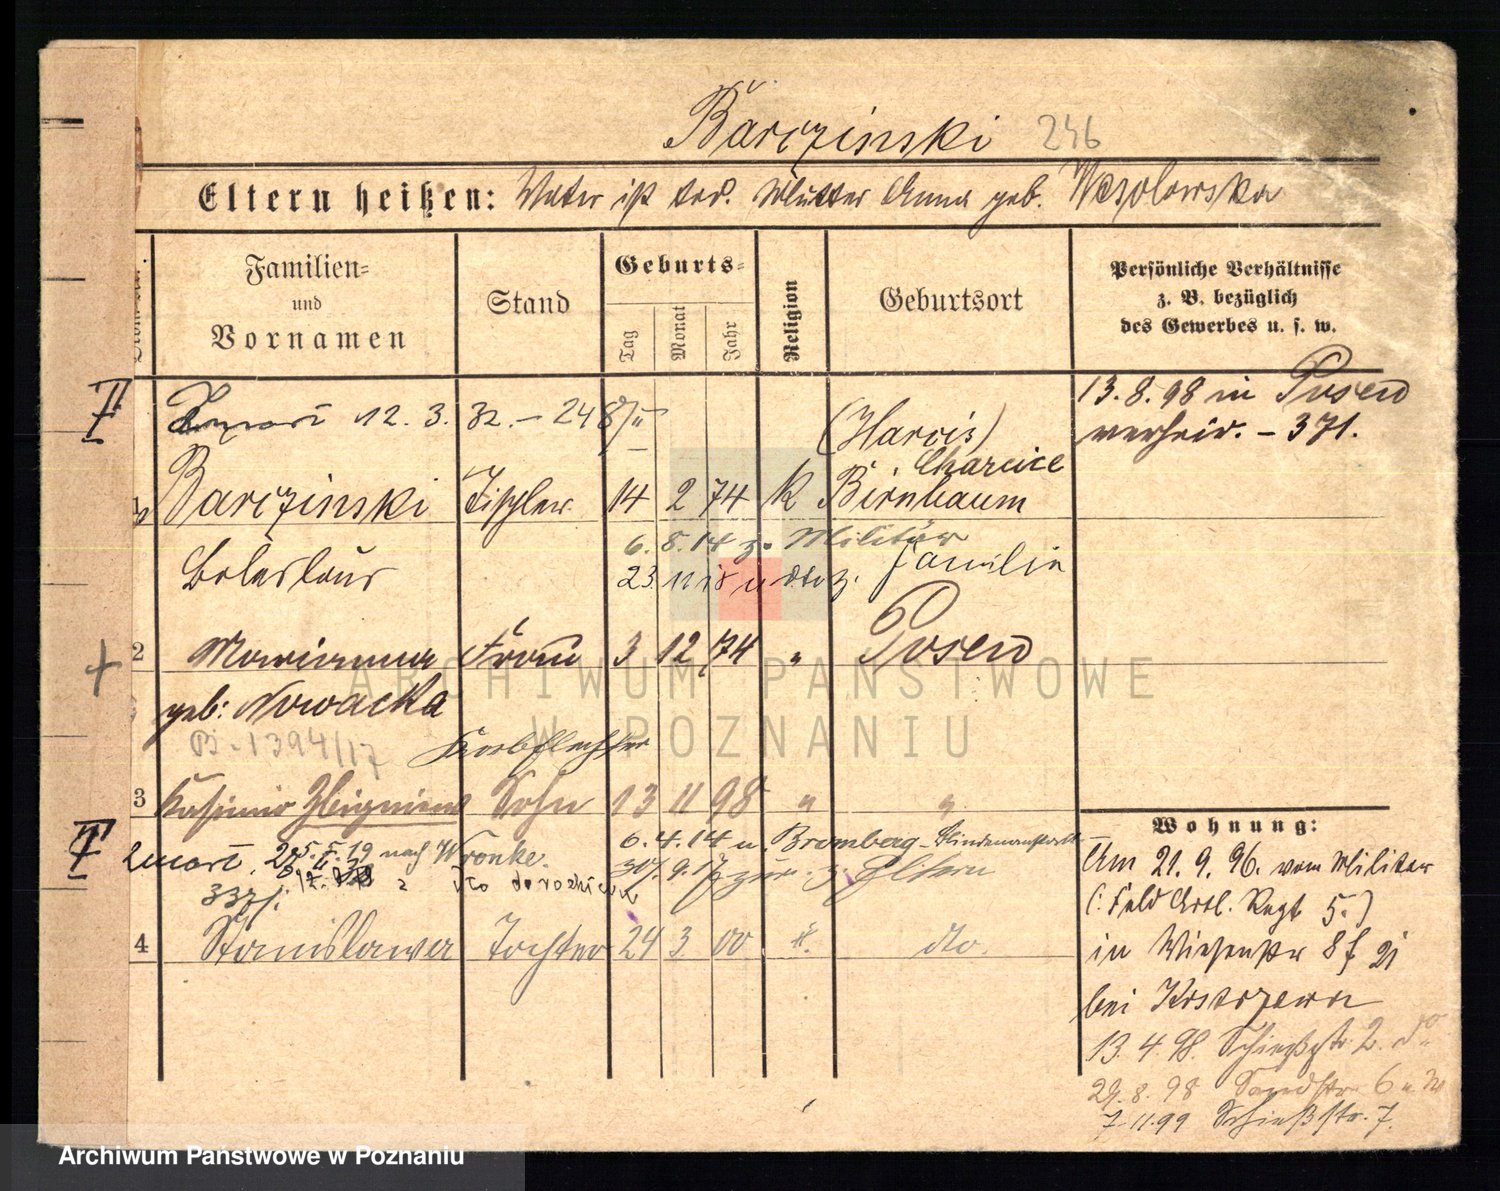 Barczinski 246
Eltern heißen: Vater ist tod. Mutter Anna geb. Wesolowska
Familien=
und
Vornamen
Stand
Geburts=
Tag
Monat
Jahr
Religion
Geburtsort
Persönliche Verhältnisse
z. B. bezüglich
des Gewerbes u. s. w.
13.8.98 in Posen
verheir. – 371.
12.3.32. – 248
(Harcis)
Charcice
Barczinski Tischler 14 2 74 K Birnbaum
6.8.14 z. Militär
Boleslaus
23. 11 18 u dto z. Familie
2 Marianna Frau 3 12 74 " Posen
geb: Nowacka
1394/17
Korbflechter
3 Kasimir Zbigniew Sohn 13 11 98 " "
6.4.14 u. Bromberg – Blindenanstalt
5.5.19 nach Wronke.
30/.9.17 zur. z. Eltern
337/.
4 Stanislawa Tochter 24 3 00 k. dto.
Wohnung:
Am 21.9.96. vom Militär
(: Feld Artl. Regt 5.)
in Wiesenstr 8
bei
13.4.98. Schießstr. 2.
29.8.98 Sandstr 6
7.11.99 Schießstr. 7.
ARCHIWUM PAŃSTWOWE
W POZNANIU
Archiwum Państwowe w Poznaniu